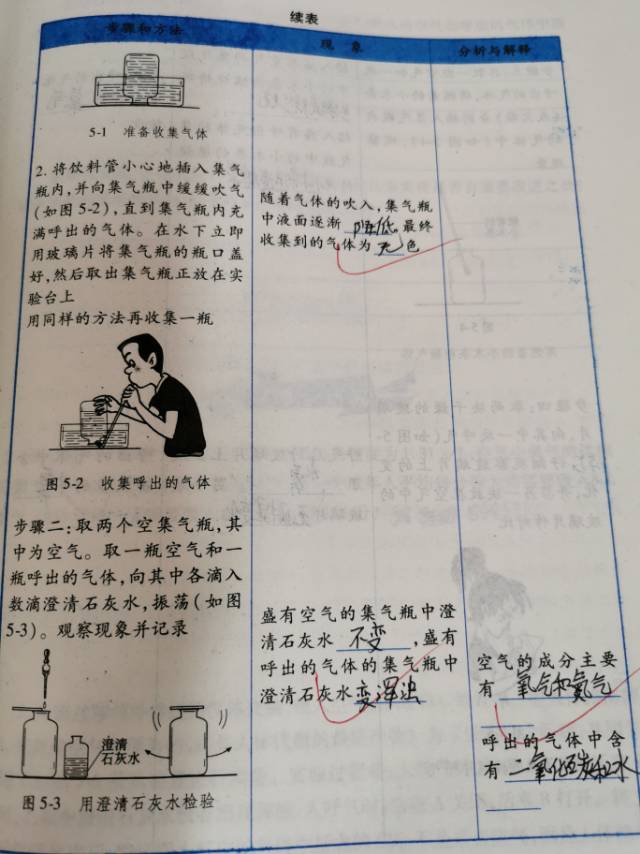 续表
步骤和方法
现 象
分析与解释
5-1 准备收集气体
2. 将饮料管小心地插入集气
瓶内,并向集气瓶中缓缓吹气
(如图 5-2),直到集气瓶内充
满呼出的气体。在水下立即
用玻璃片将集气瓶的瓶口盖
好,然后取出集气瓶正放在实
验台上
用同样的方法再收集一瓶
随着气体的吹入,集气瓶
中液面逐渐 降低 最终
收集到的气体为 无 色
图 5-2 收集呼出的气体
步骤二:取两个空集气瓶,其
中为空气。取一瓶空气和一
瓶呼出的气体,向其中各滴入
数滴澄清石灰水,振荡(如图
5-3)。观察现象并记录
盛有空气的集气瓶中澄
清石灰水 不变 ,盛有
呼出的气体的集气瓶中
澄清石灰水 变浑浊
空气的成分主要
有 氧气和氮气
呼出的气体中含
有 二氧化碳和水
澄清
石灰水
图 5-3 用澄清石灰水检验